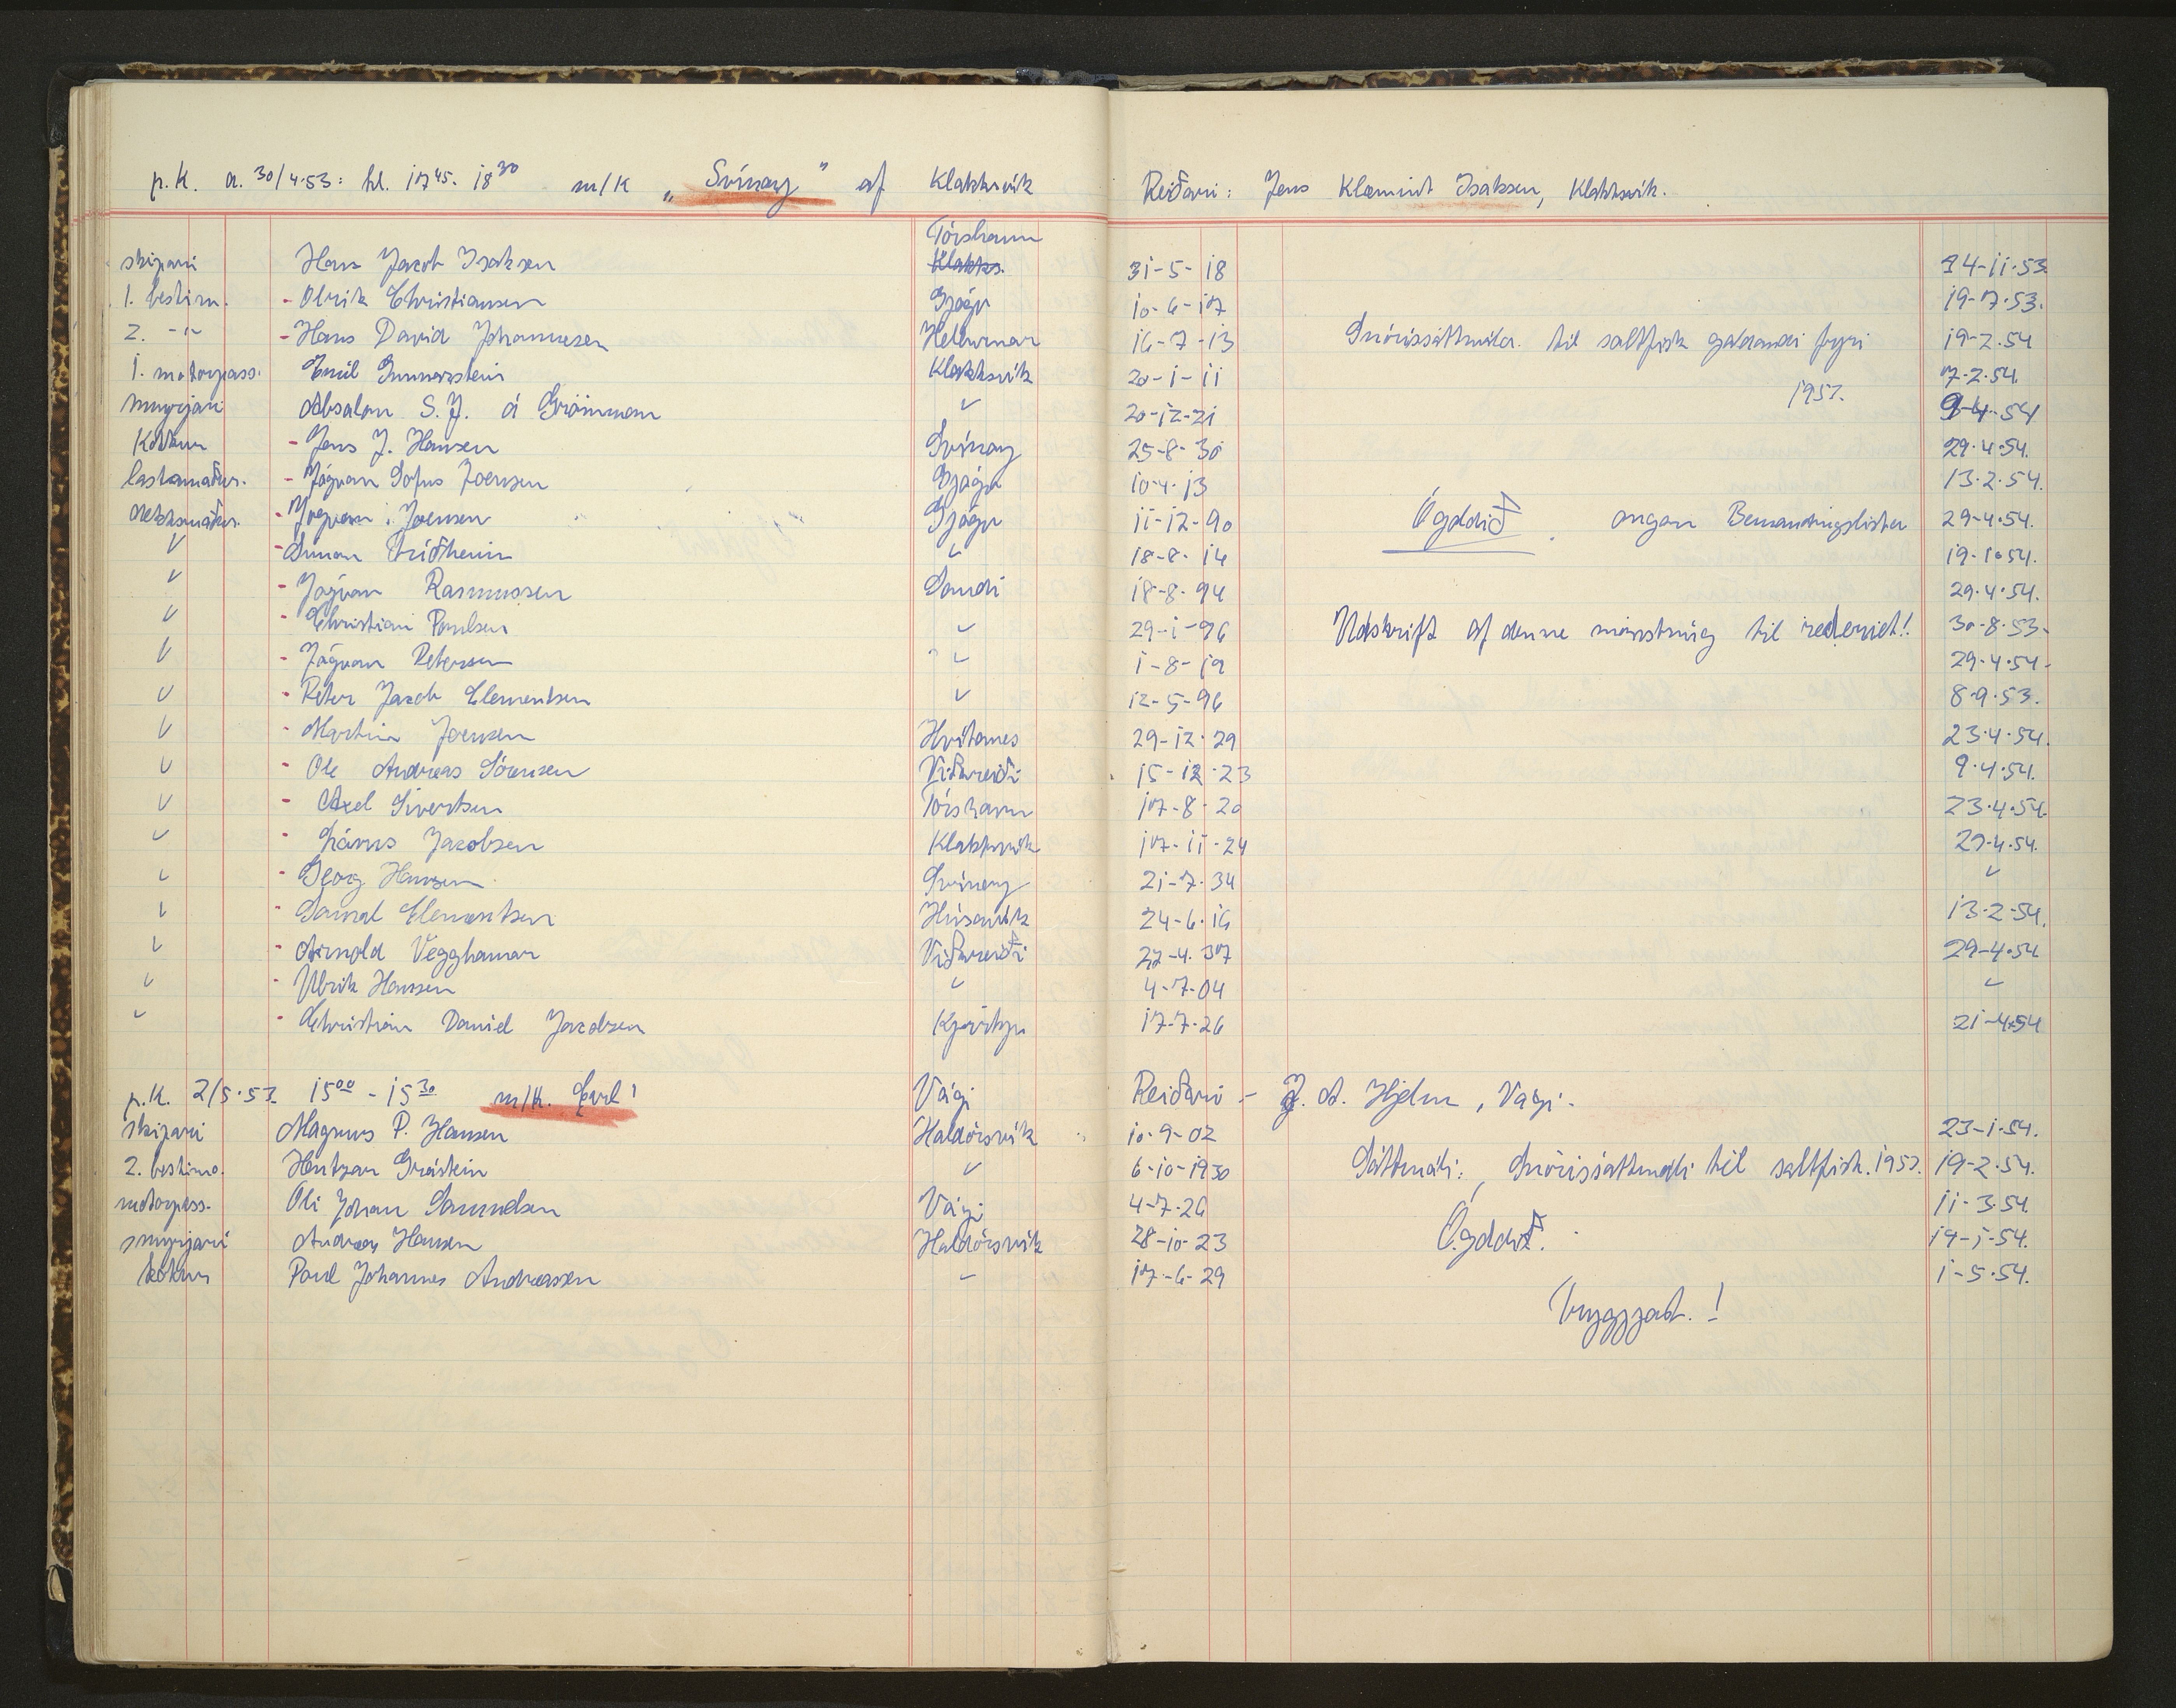 p.k. d. 30/4.53: kl. 17 45 - 18 30 m/k „Svínoy" af Klakksvík Reiðari: Jens Klæmint Isaksen, Klakksvík.
Tórshavn
skipari Hans Jacob Isaksen Klakks. 31-5-18 14-11-53
1. bestm. - Olrik Christiansen Gjógv 10-6-17 19-7-53.
2. -"- - Hans David Johannesen Hellurnar 16-7-13 til saltfisk galdandi fyri 19-2-54
1. motorpass. Emil Gunnarstein Klakksvík 20-1-11 1953. 7-2-54
smyrjari Absalon S. J. á 〃 20-12-21 9-4-54
Kokkur - Jens J. Hansen Svínoy 25-8-30 29-4-54.
lastamaður. - Jógvan Sofus Joensen Gjógv 10-4-13 13-2-54.
dekksmaður. - Jógvan i. Joensen Gjógv 11-12-90 Ógoldið. ongan Bemandingslister 29-4-54.
〃 - Simon 〃 18-8-14 19-1-54.
〃 - Jógvan Rasmussen Sandi 18-8-94 29-4-54.
〃 - Christian Poulsen 〃 29-1-96 Udskrift af denne mønstring til rederiet! 30-8-53-
〃 - Jógvan Petersen 〃 1-8-19 29-4-54-
〃 - Peter Jacob Clementsen 〃 12-5-96 8-9-53.
〃 - Martin Joensen Hvítanes 29-12-29 23-4-54.
〃 - Ole Andreas Sörensen Viðareiði 15-12-23 9-4-54.
〃 - Axel Sivertsen Tórshavn 17-8-20 23-4-54.
〃 - Lárus Jacobsen Klakksvík 17-11-24 29-4-54.
〃 - Georg Hansen Svínoy 21-7-34 〃
〃 - Samal Clementsen Húsavík 24-6-16 13-2-54.
〃 - Arnold Vegghamar Viðareiði 27-4-37 29-4-54
〃 - Ulrik Hansen 〃 4-7-04 〃
〃 - Christian Daniel Jacobsen 17-7-26 21-4-54
p.k. 2/5.53. 15 00 - 15 30 m/k. Vági Reiðari - J. A. Hjelm, Vági.
skipari Magnus P. Hansen Haldórsvík 10-9-02 23-1-54.
2. bestimo. Hentzar Grástein 〃 6-10-1930 Sáttmáli: til saltfisk. 1953. 19-2-54.
motorpass. Óli Johan Samuelsen Vági 4-7-26 11-3-54
smyrjari Andreas Hansen Haldórsvík 28-10-23 Ógoldið. 19-1-54.
kokkur Poul Johannes Andreasen - 17-6-29 1-5-54.
Tryggjað.!